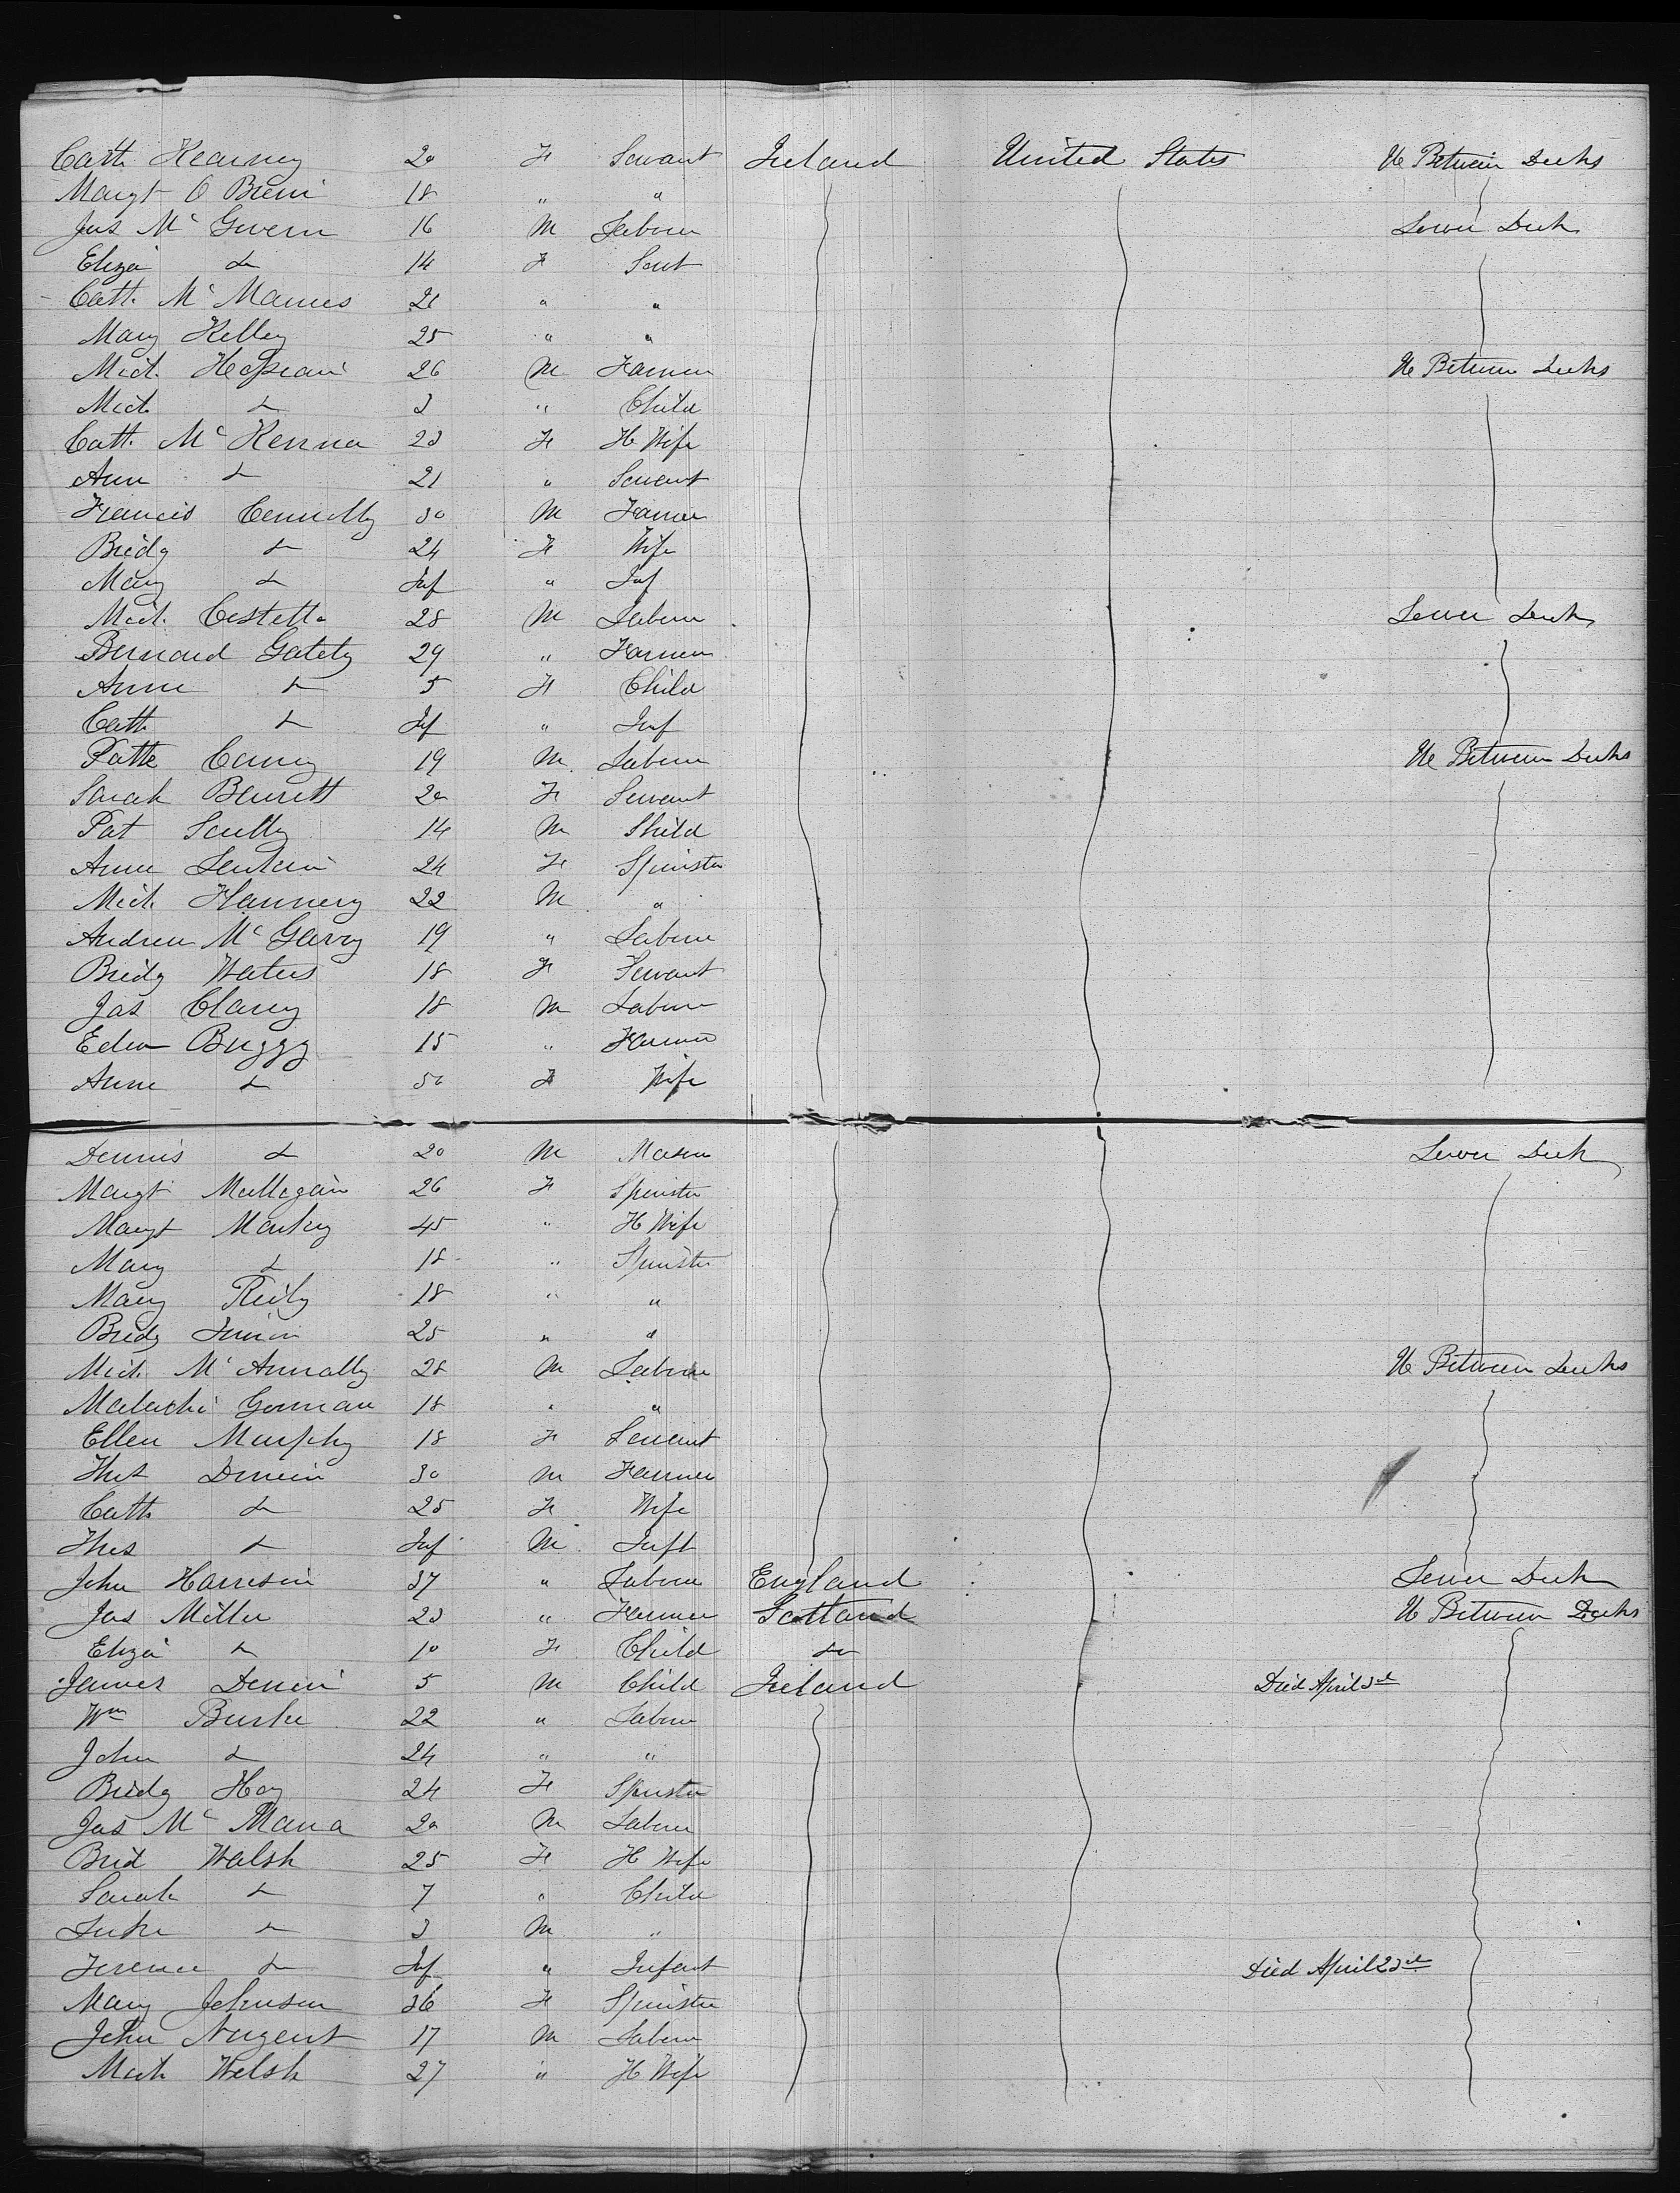 Cath Kearney 20 F Servant Ireland United States U Between Decks
Margt O Brien 18 " "
Jas Mc Govern 16 M Laborer Lower Deck
Eliza do 14 F Sevt
Cath Mc Manus 21 " "
Mary Kelley 25 " "
Mich 26 M Farmer U Between Decks
Mich do 3 " Child
Cath Mc Kenna 23 F H Wife
Ann do 21 " Servant
Francis Connolly 30 M Farmer
Bridg do 24 F Wife
Mary do Inf " Inf
Mich Costello 28 M Laborer Lower Deck
Bernard Gately 29 " Farmer
Anne do 5 F Child
Cath do Inf " Inf
Patk 19 M Laborer U Between Decks
Sarah Bennett 20 F Servant
Pat Scully 14 M Child
Anne 24 F Spinster
Mich Flannery 22 M "
Andrew Mc Garry 19 " Laborer
Bridg Waters 18 F Servant
Jas Clancy 18 M Laborer
Edw Buggy 15 " Farmer
Anne do 50 F Wife
Dennis do 20 M Mason Lower Deck
Margt Mullegan 26 F Spinster
Margt Markey 45 " H Wife
Mary do 18 " Spinster
Mary Reily 18 " "
Bridg 25 " "
Mich Mc Annally 28 M Laborer U Between Decks
Malachi Gorman 18 " "
Ellen Murphy 18 F Servant
Thos 30 M Farmer
Cath do 25 F Wife
Thos do Inf M Inft
John Harrison 37 " Laborer England Lower Deck
Jas Miller 23 " Farmer Scotland U Between Decks
Eliza do 10 F Child do
James 5 M Child Ireland Died April 3d
Wm Burke 22 " Laborer
John do 24 " "
Bridg Hoy 24 F Spinster
Jas Mc Mana 20 M Laborer
Brid Walsh 25 F H Wife
Sarah do 7 " Child
Luke do 3 M "
Terence do Inf " Infant Died April 23d
Mary Johnson 36 F Spinster
John Nugent 17 M Laborer
Mark Welsh 27 " H Wife